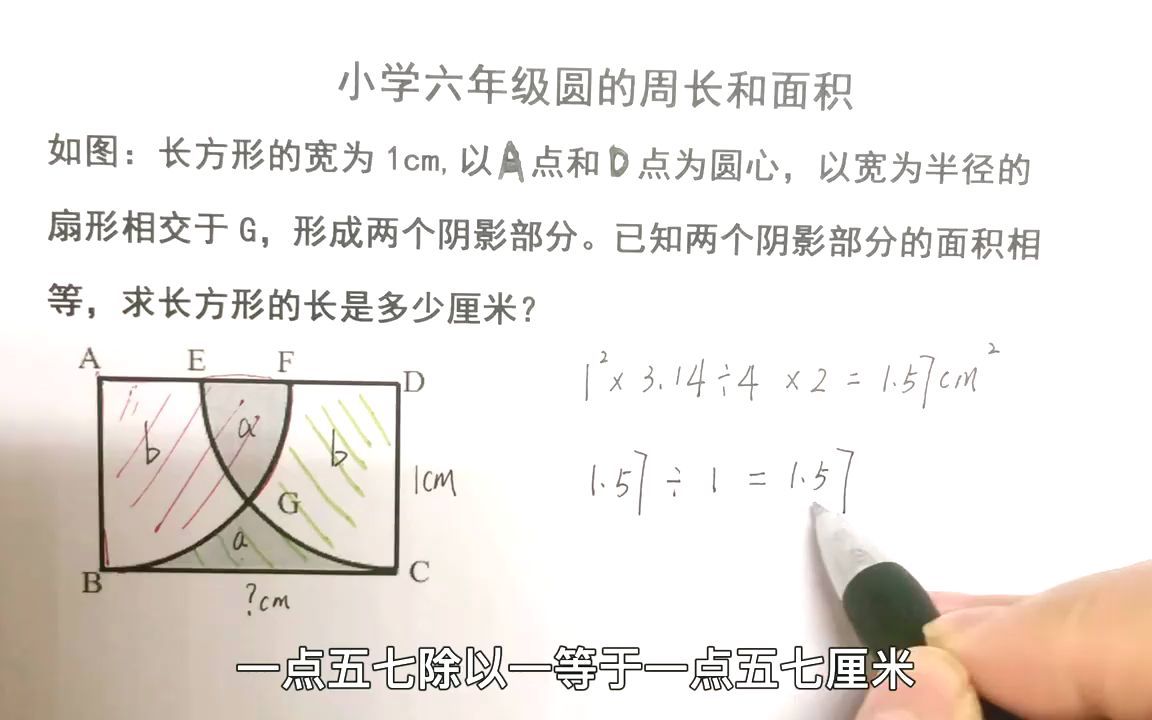 小学六年级圆的周长和面积
如图：长方形的宽为1cm,以A点和D点为圆心，以宽为半径的
扇形相交于G，形成两个阴影部分。已知两个阴影部分的面积相
等，求长方形的长是多少厘米？
A E F D
b a b
1cm
G
a
B C
?cm
1²×3.14÷4×2=1.57cm²
1.57÷1=1.57
一点五七除以一等于一点五七厘米